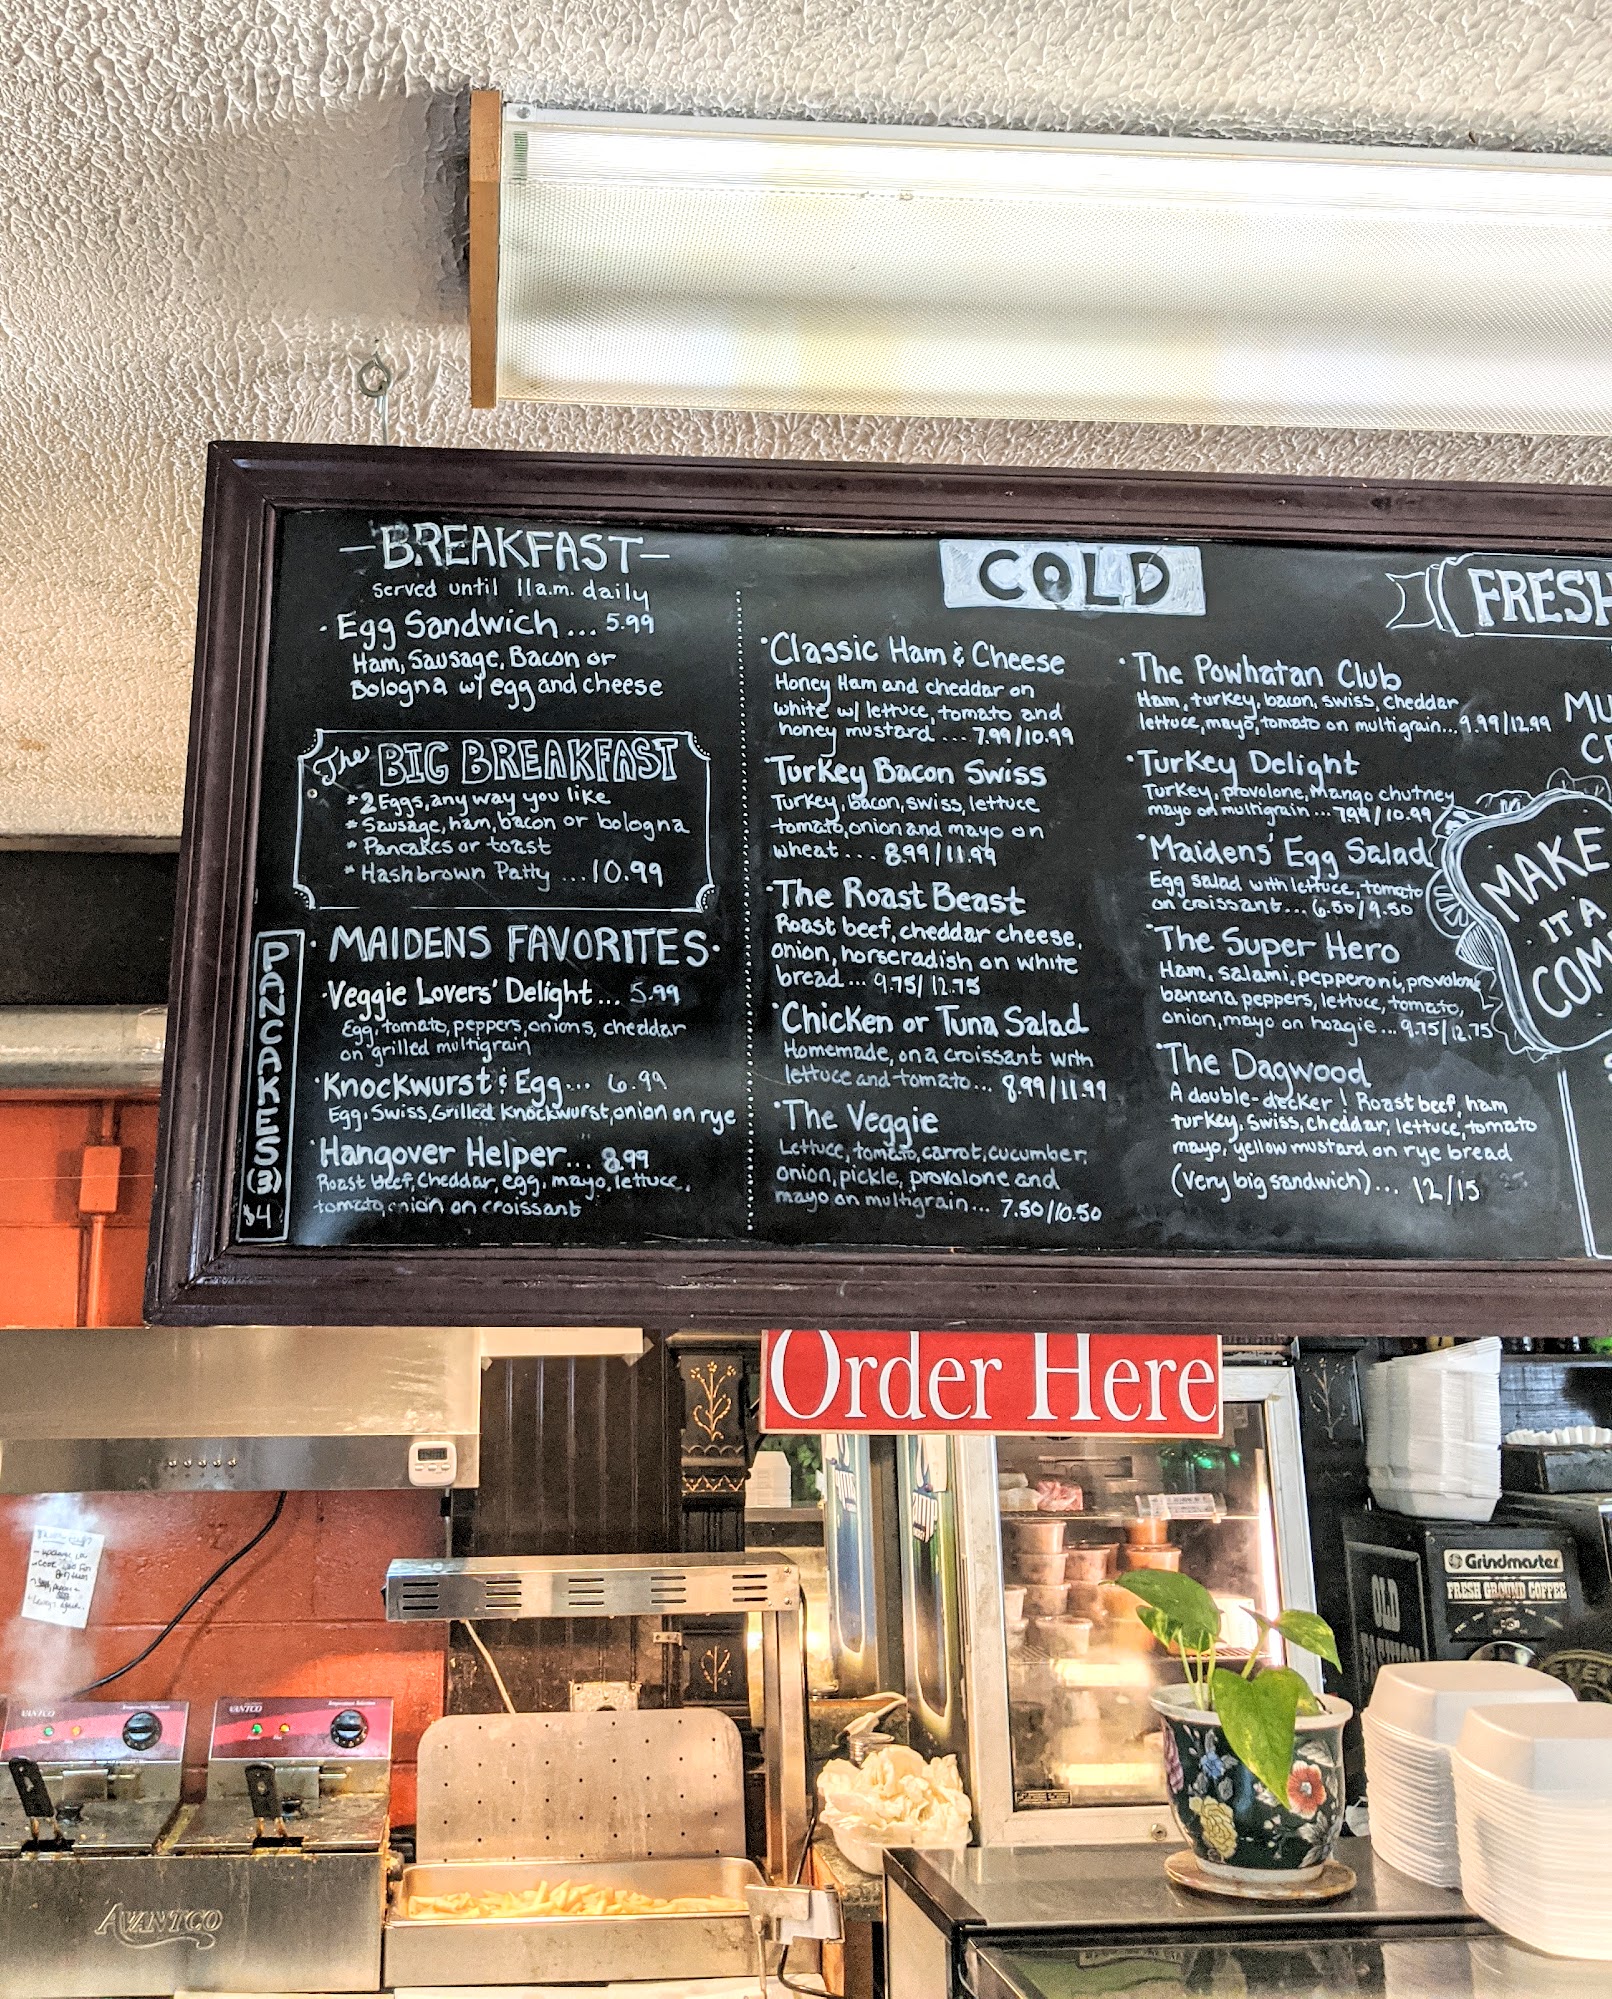 -BREAKFAST-
served until 11a.m. daily
· Egg Sandwich... 5.99
Ham, Sausage, Bacon or
Bologna w/ egg and cheese
The BIG BREAKFAST
* 2 Eggs, any way you like
* Sausage, ham, bacon or bologna
* Pancakes or toast
* Hashbrown Patty ...10.99
PANCAKES (3) $4
· MAIDENS FAVORITES·
·Veggie Lovers' Delight... 5.99
Egg, tomato, peppers, onions, cheddar
on grilled multigrain
·Knockwurst & Egg... 6.99
Egg, Swiss, Grilled Knockwurst, onion on rye
·Hangover Helper... 8.99
Roast beef, cheddar, egg, mayo, lettuce,
tomato, onion on croissant
COLD
·Classic Ham & Cheese
Honey Ham and cheddar on
white w/ lettuce, tomato and
honey mustard ... 7.99/10.99
·Turkey Bacon Swiss
Turkey, bacon, swiss, lettuce
tomato, onion and mayo on
wheat... 8.99/11.99
·The Roast Beast
Roast beef, cheddar cheese,
onion, horseradish on white
bread... 9.75/12.75
·Chicken or Tuna Salad
Homemade, on a croissant with
lettuce and tomato... 8.99/11.99
·The Veggie
Lettuce, tomato, carrot, cucumber,
onion, pickle, provolone and
mayo on multigrain... 7.50/10.50
·The Powhatan Club
Ham, turkey, bacon, swiss, cheddar
lettuce, mayo, tomato on multigrain...9.99/12.99
·Turkey Delight
Turkey, provolone, Mango chutney
mayo on multigrain...7.99/10.99
·Maidens' Egg Salad
Egg salad with lettuce, tomato
on croissant... 6.50/9.50
·The Super Hero
Ham, salami, pepperoni, provolone
banana peppers, lettuce, tomato,
onion, mayo on hoagie...9.75/12.75
·The Dagwood
A double-decker! Roast beef, ham
turkey, swiss, cheddar, lettuce, tomato
mayo, yellow mustard on rye bread
(Very big sandwich)... 12/15
FRESH
MU
C
MAKE
IT A
COM
Order Here
Grindmaster
FRESH GROUND COFFEE
OLD
FASHION
AMP
AVANTCO
AVANTCO
AVANTCO